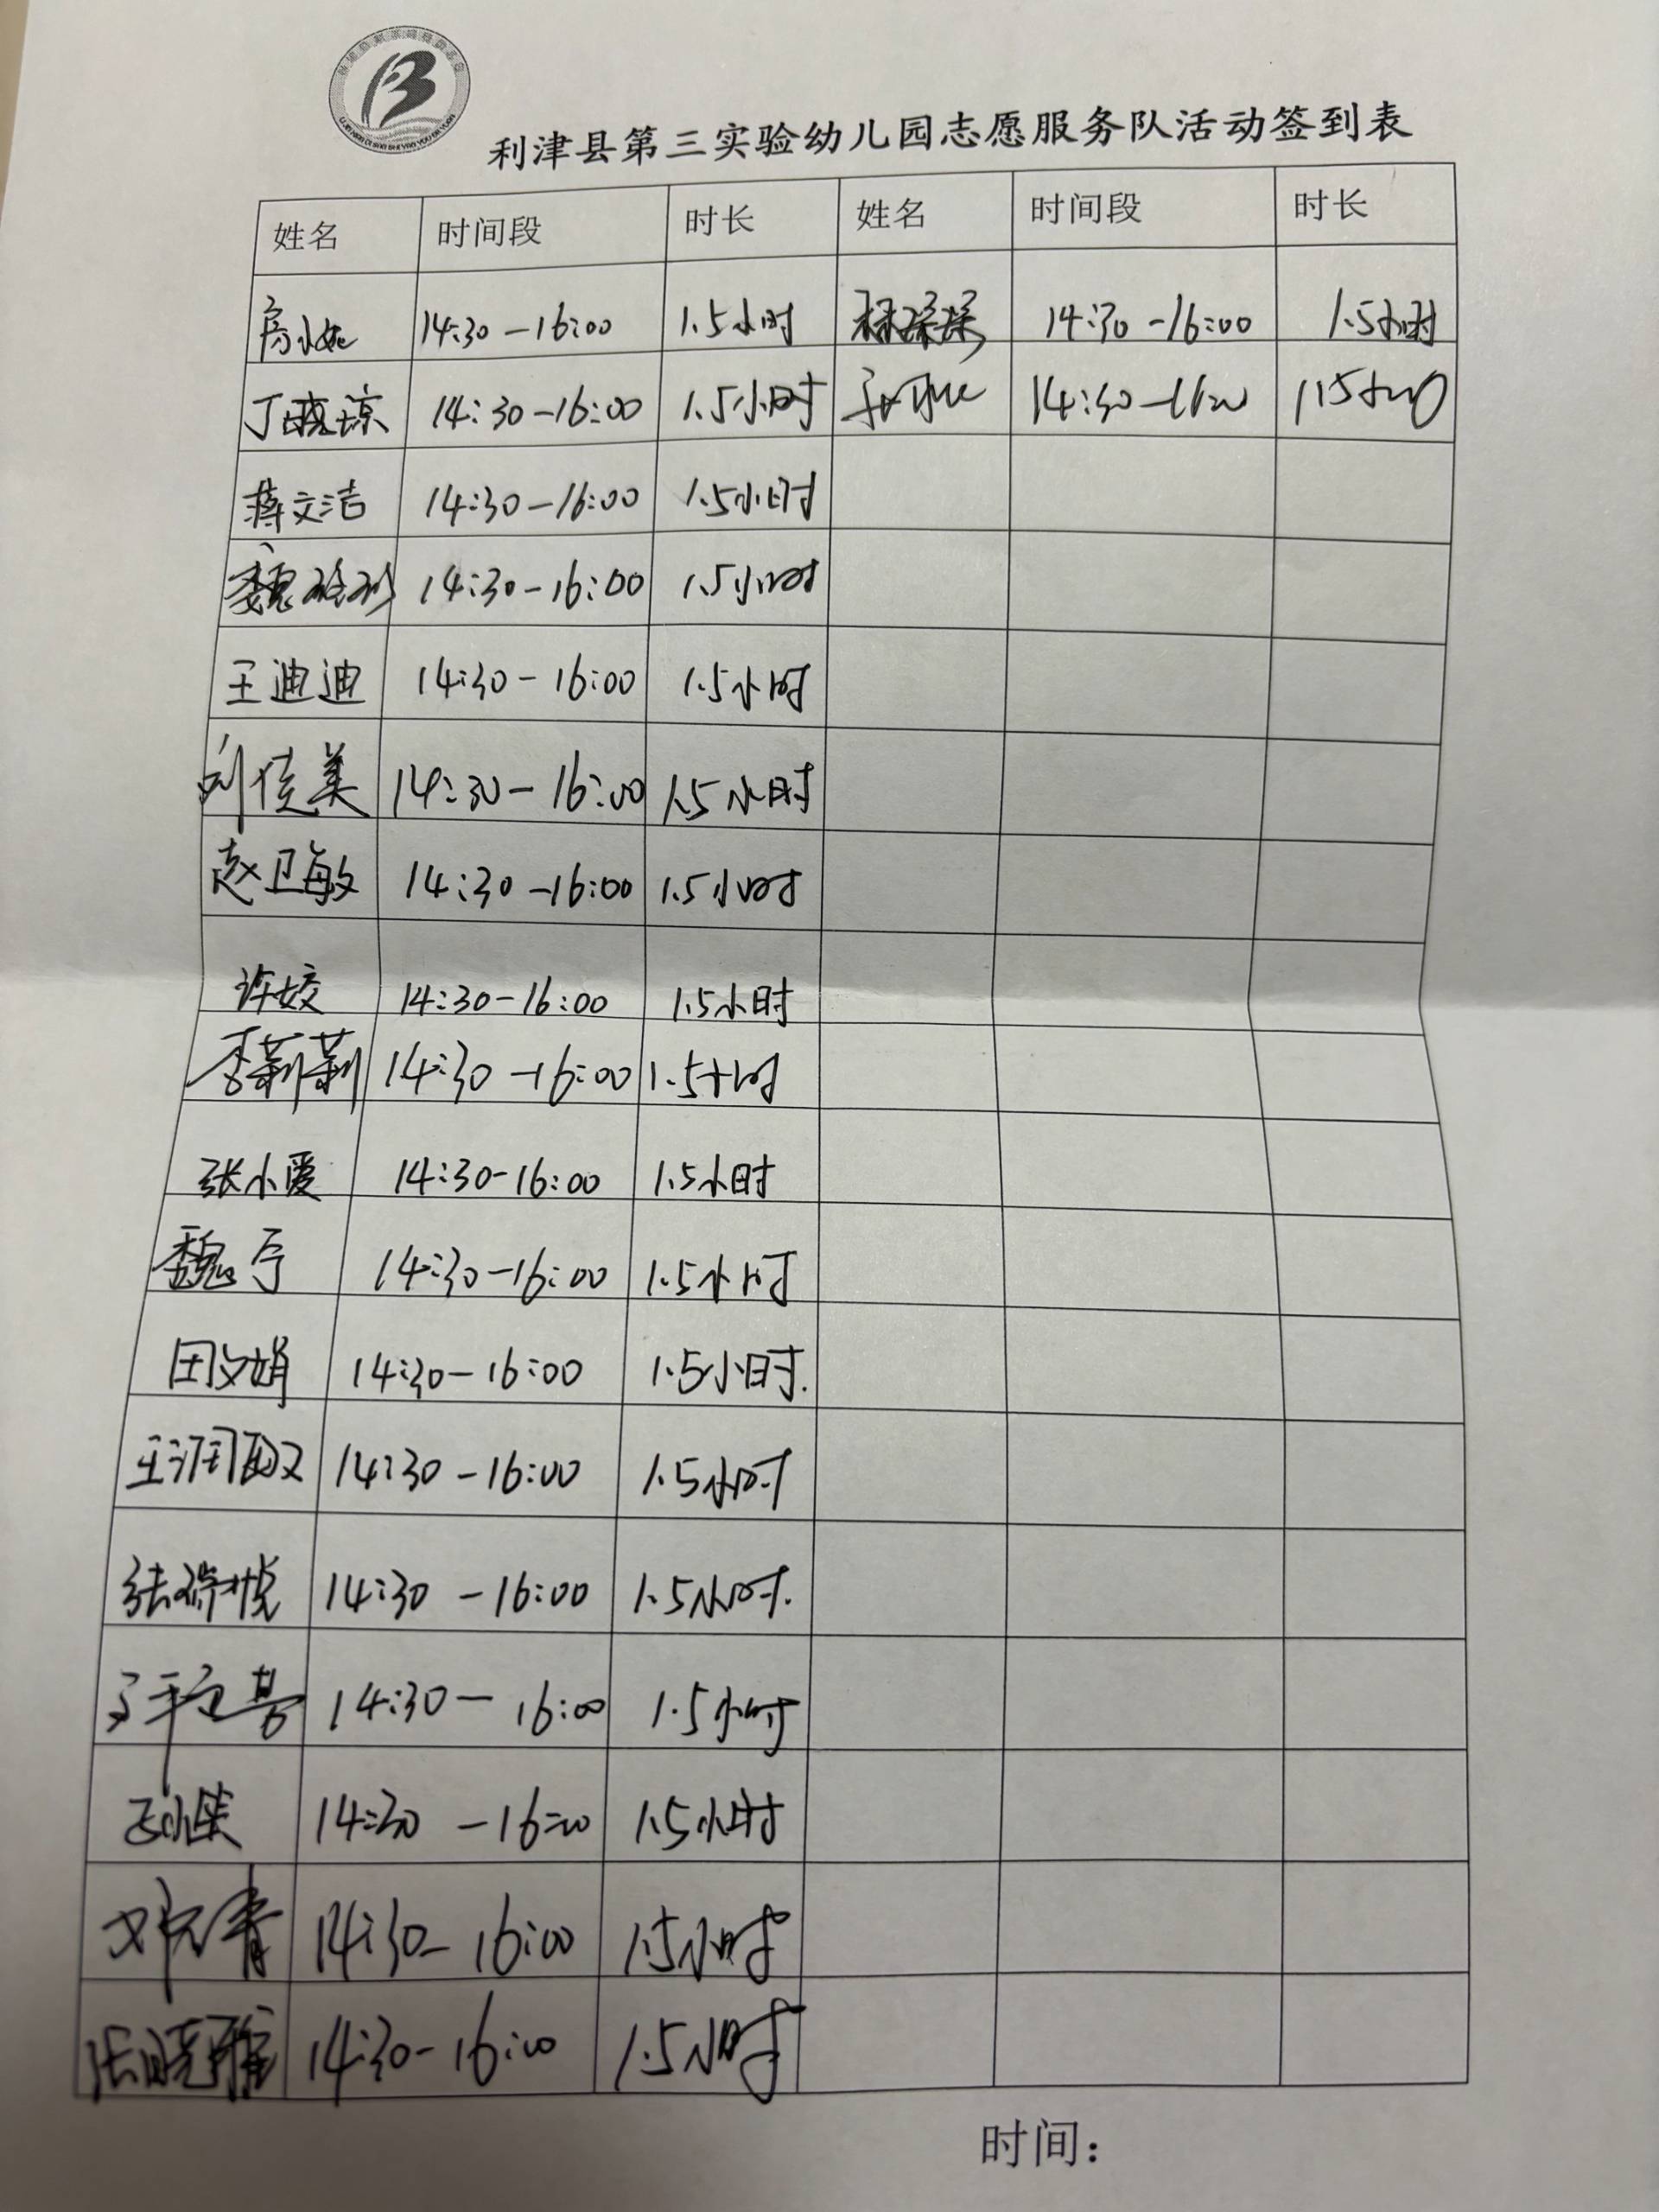 利津县第三实验幼儿园志愿服务队活动签到表
姓名 时间段 时长 姓名 时间段 时长
14:30-16:00 1.5小时 14:30-16:00 1.5小时
丁晓琼 14:30-16:00 1.5小时 14:30-16:00 1.5小时
蒋文洁 14:30-16:00 1.5小时
魏玲玲 14:30-16:00 1.5小时
王迪迪 14:30-16:00 1.5小时
刘佳美 14:30-16:00 1.5小时
赵卫敏 14:30-16:00 1.5小时
许姣 14:30-16:00 1.5小时
李莉莉 14:30-16:00 1.5小时
张小爱 14:30-16:00 1.5小时
魏亭 14:30-16:00 1.5小时
田文娟 14:30-16:00 1.5小时
14:30-16:00 1.5小时
张瑞悦 14:30-16:00 1.5小时
14:30-16:00 1.5小时
14:30-16:00 1.5小时
14:30-16:00 1.5小时
张晓雅 14:30-16:00 1.5小时
时间: